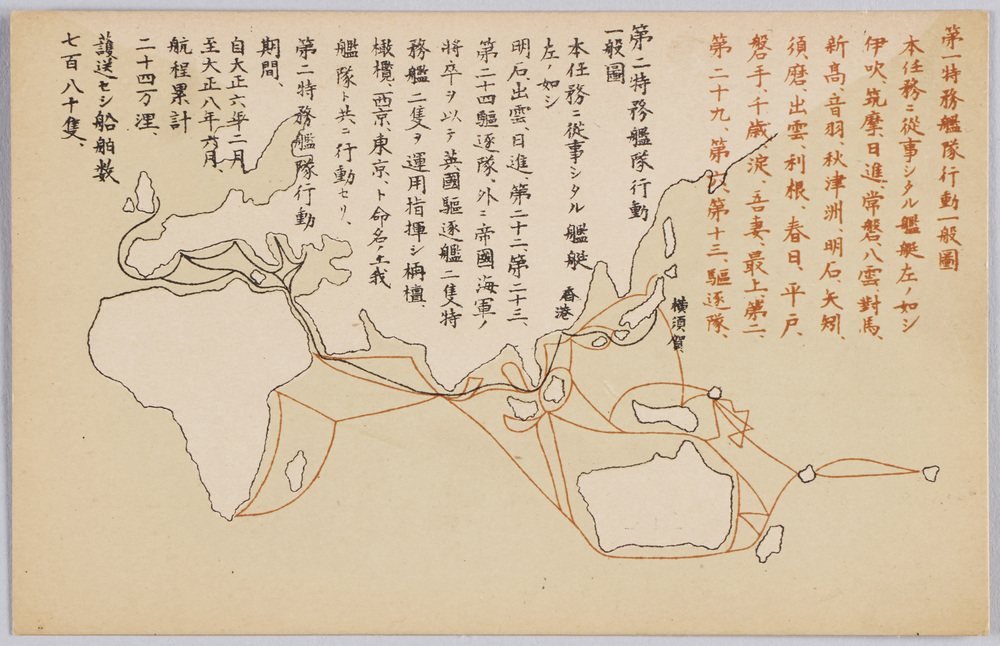 第一特務艦隊行動一般圖
本任務ニ從事シタル艦艇左ノ如シ
伊吹、筑摩、日進、常磐、八雲對馬、
新高、音羽、秋津洲、明石、矢矧、
須磨、出雲、利根、春日、平戸、
磐手、千歳、淀、吾妻、最上、第二、
第二十九、第六、第十三、駆逐隊、
第二特務艦隊行動
一般圖
本任務ニ從事シタル艦艇
左ノ如シ
明石、出雲、日進、第二十二、第二十三、
第二十四驅逐隊、外ニ帝國海軍ノ
將卒ヲ以テ英國驅逐艦二隻特
務艦二隻ヲ運用指揮シ栴檀、
橄欖、西京、東京、ト命名シ我
艦隊ト共ニ行動セリ、
第二特務艦隊行動
期間、
自大正六年二月
至大正八年六月、
航程累計
二十四万浬、
護送セシ船舶数
七百八十隻、
香港
横須賀